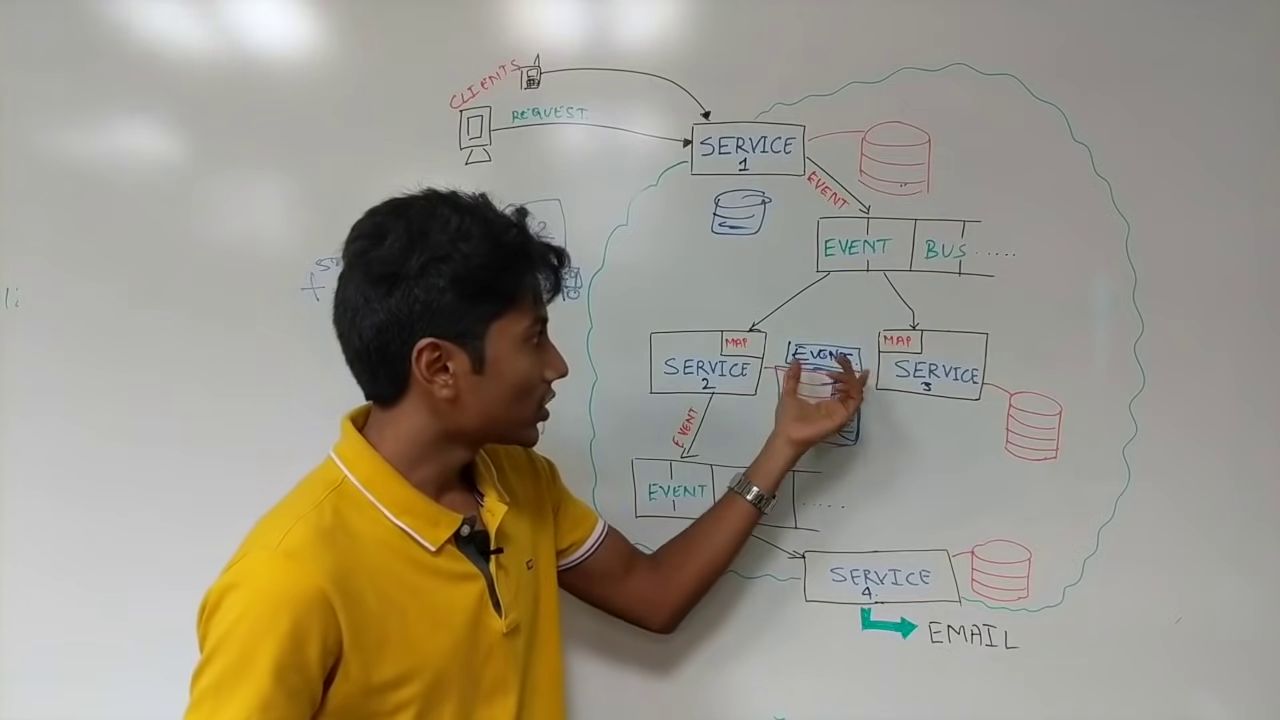 CLIENTS
REQUEST
SERVICE
1
EVENT
EVENT BUS .....
MAP
SERVICE
2
EVENT
MAP
SERVICE
3
EVENT
EVENT
....
SERVICE
4.
EMAIL
li